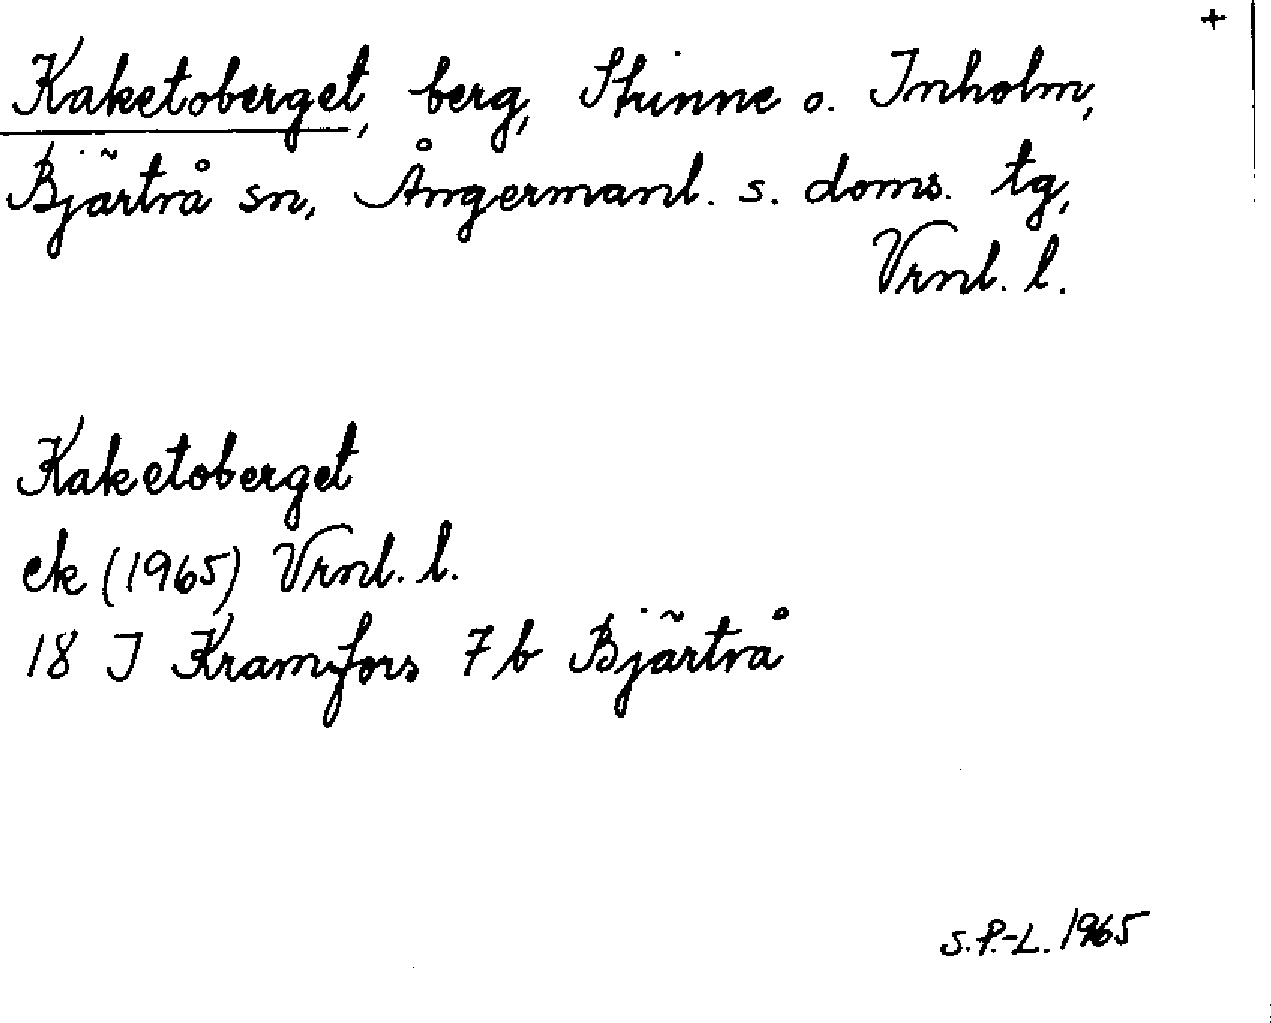 +
Kaketoberget, berg, Skinne o. Inholm,
Bjärtrå sn, Ångermanl. s. doms. tg,
Vrnl. l.
Kaketoberget
ek (1965) Vrnl. l.
18 I Kramfors 7 b Bjärtrå
S.P.-L. 1965